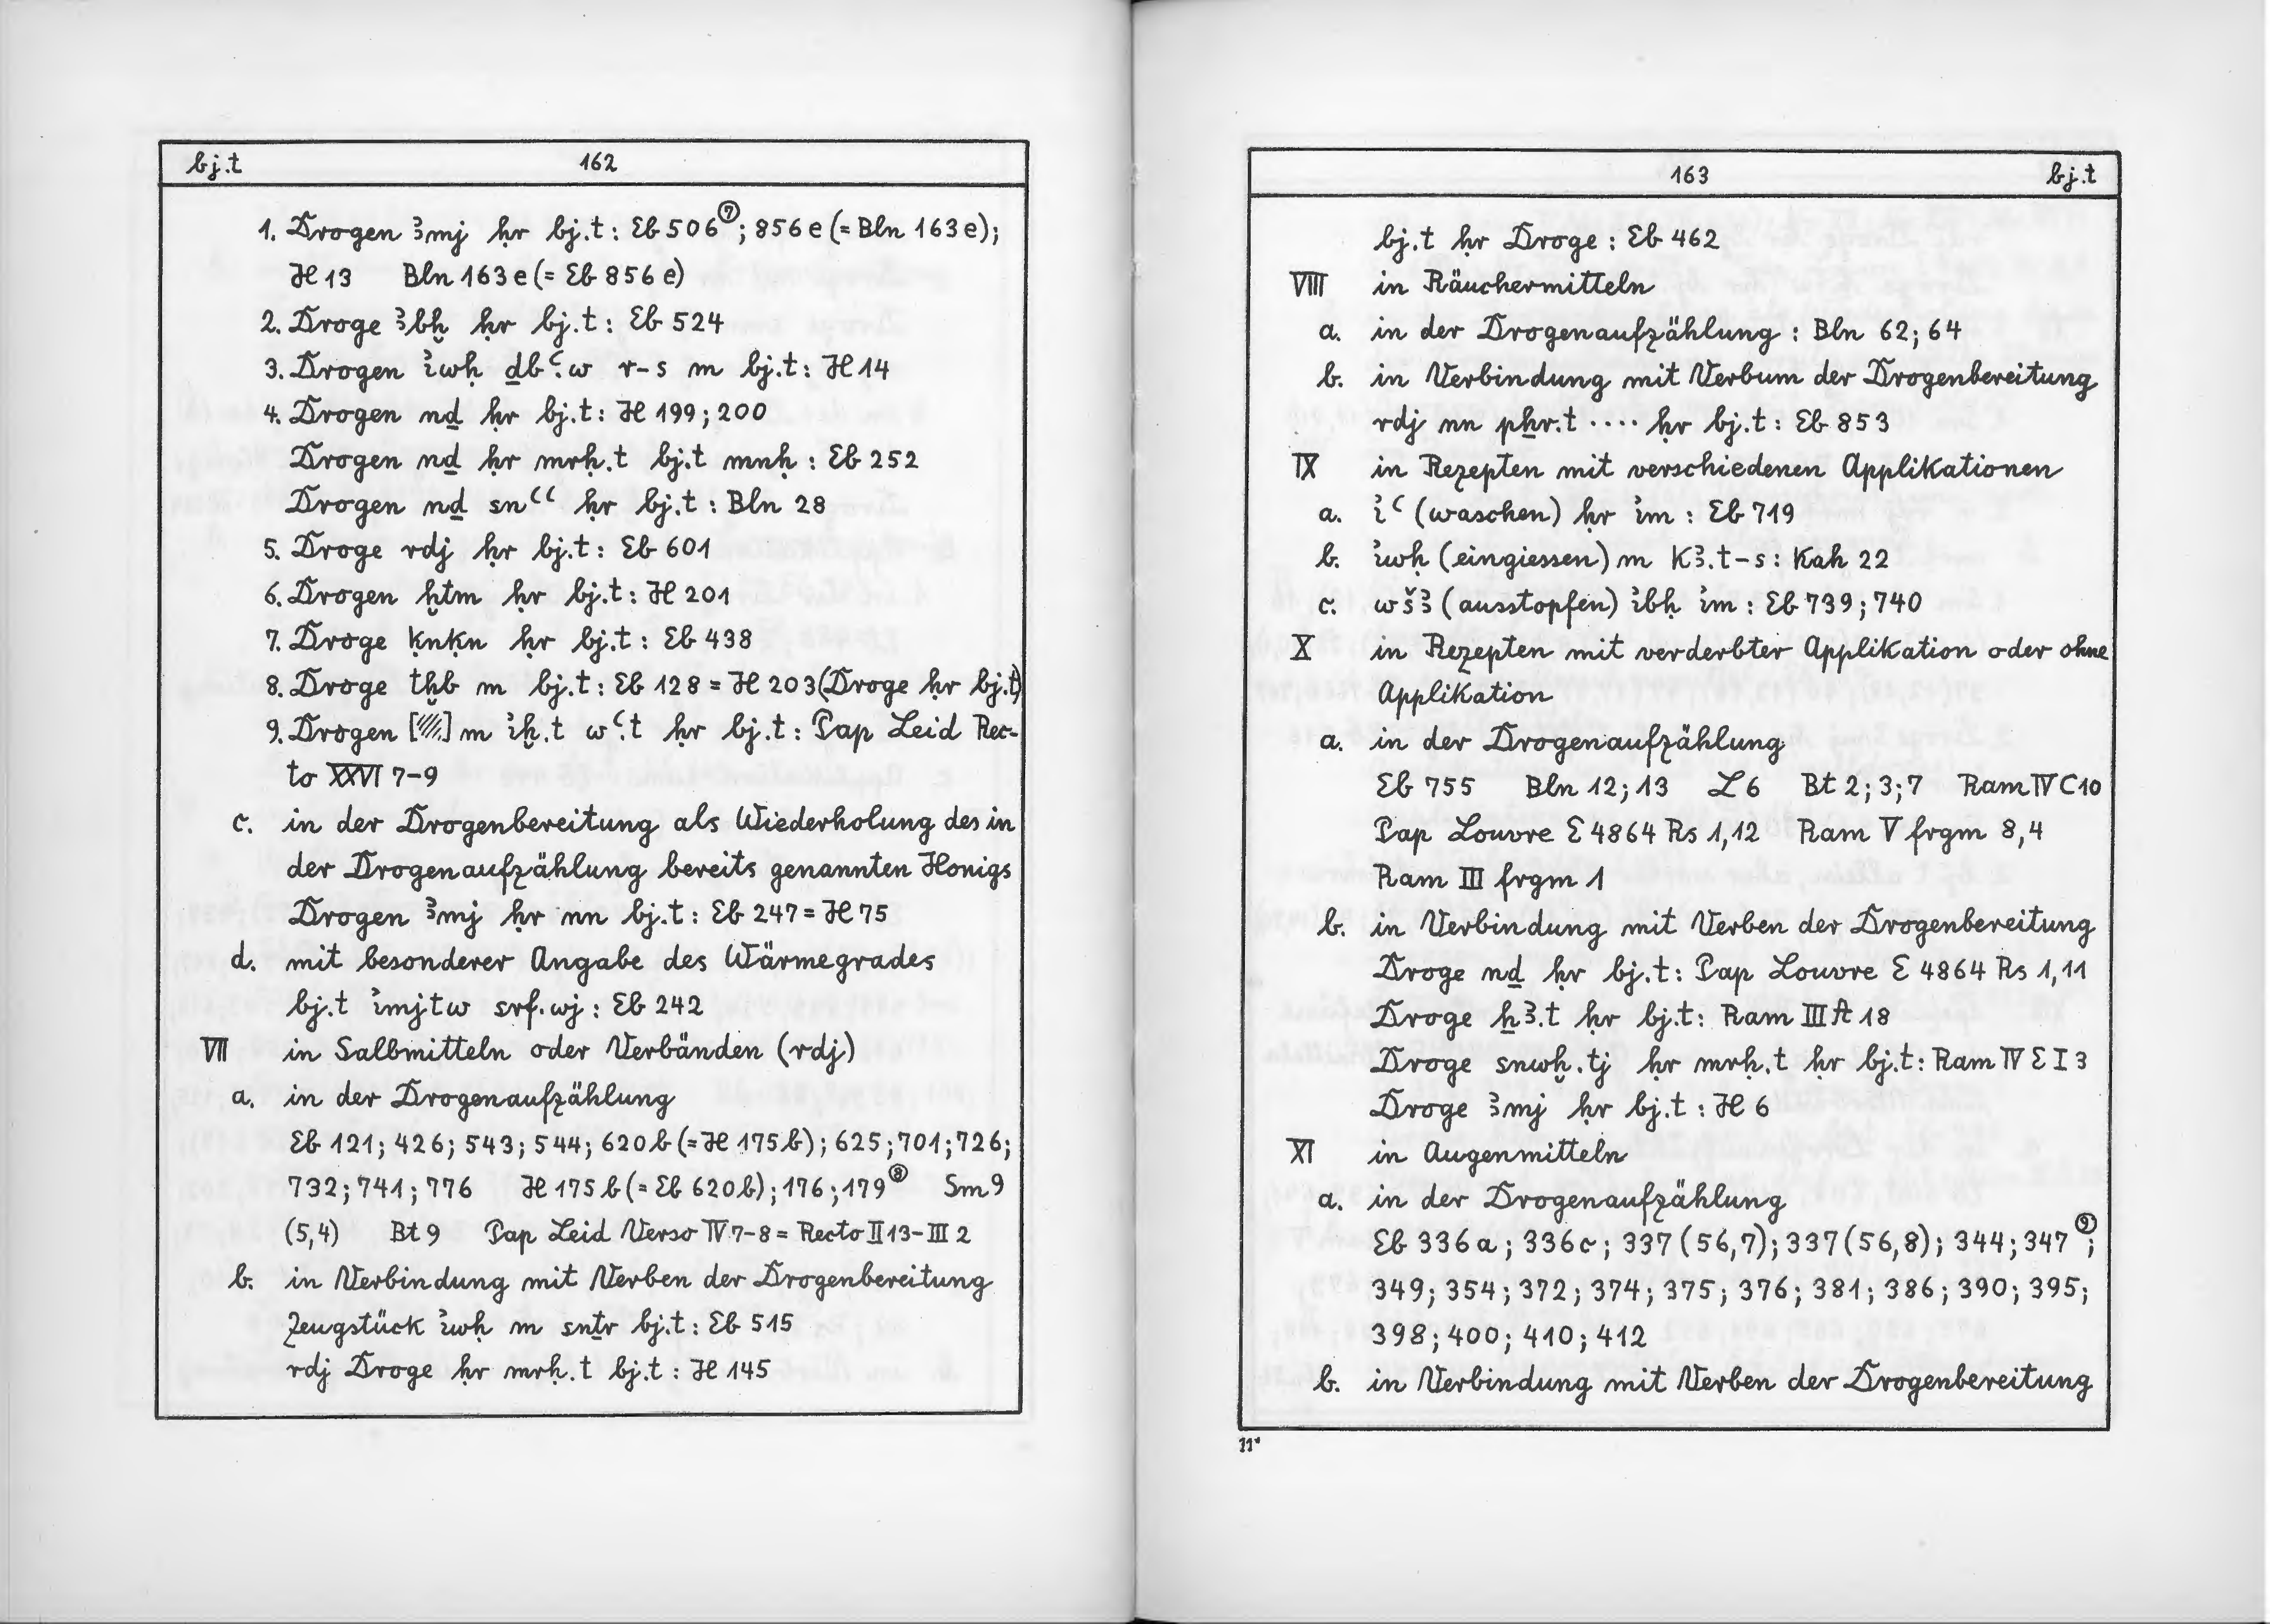 bj.t 162
1. Drogen ꜣmj ḥr bj.t: Eb 506⑦; 856e (= Bln 163e);
H 13 Bln 163e (= Eb 856e)
2. Droge ꜣbḫ ḥr bj.t: Eb 524
3. Drogen ꞽwḥ ḏbꜥ.w r-s m bj.t: H 14
4. Drogen nḏ ḥr bj.t: H 199; 200
Drogen nḏ ḥr mrḥ.t bj.t mnḥ: Eb 252
Drogen nḏ snꜥꜥ ḥr bj.t: Bln 28
5. Droge rdj ḥr bj.t: Eb 601
6. Drogen ḫtm ḥr bj.t: H 201
7. Droge ḳnḳn ḥr bj.t: Eb 438
8. Droge tḫb m bj.t: Eb 128 = H 203 (Droge ḥr bj.t)
9. Drogen [////] m ꞽḫ.t wꜥ.t ḥr bj.t: Pap Leid Rec-
to XXVI 7-9
c. in der Drogenbereitung als Wiederholung des in
der Drogenaufzählung bereits genannten Honigs
Drogen ꜣmj ḥr nn bj.t: Eb 247 = H 75
d. mit besonderer Angabe des Wärmegrades
bj.t ꞽmjtw srf.wj: Eb 242
VII in Salbmitteln oder Verbänden (rdj)
a. in der Drogenaufzählung
Eb 121; 426; 543; 544; 620b (= H 175b); 625; 701; 726;
732; 741; 776 H 175b (= Eb 620b); 176; 179⑧ Sm 9
(5,4) Bt 9 Pap Leid Verso IV 7-8 = Recto II 13-III 2
b. in Verbindung mit Verben der Drogenbereitung
Zeugstück ꞽwḥ m snṯr bj.t: Eb 515
rdj Droge ḥr mrḥ.t bj.t: H 145
163 bj.t
bj.t ḥr Droge: Eb 462
VIII in Räuchermitteln
a. in der Drogenaufzählung: Bln 62; 64
b. in Verbindung mit Verbum der Drogenbereitung
rdj nn pẖr.t .... ḥr bj.t: Eb 853
IX in Rezepten mit verschiedenen Applikationen
a. ꞽꜥ (waschen) ḥr ꞽm: Eb 719
b. ꞽwḥ (eingiessen) m kꜣ.t-s: Kah 22
c. wšꜣ (ausstopfen) ꞽbḥ ꞽm: Eb 739; 740
X in Rezepten mit verderbter Applikation oder ohne
Applikation
a. in der Drogenaufzählung
Eb 755 Bln 12; 13 L 6 Bt 2; 3; 7 Ram IV C 10
Pap Louvre E 4864 Rs 1,12 Ram V frgm 8,4
Ram III frgm 1
b. in Verbindung mit Verben der Drogenbereitung
Droge nḏ ḥr bj.t: Pap Louvre E 4864 Rs 1,11
Droge ẖꜣ.t ḥr bj.t: Ram III A 18
Droge snwḫ.tj ḥr mrḥ.t ḥr bj.t: Ram IV E I 3
Droge ꜣmj ḥr bj.t: H 6
XI in Augenmitteln
a. in der Drogenaufzählung
Eb 336a; 336c; 337 (56,7); 337 (56,8); 344; 347⑨;
349; 354; 372; 374; 375; 376; 381; 386; 390; 395;
398; 400; 410; 412
b. in Verbindung mit Verben der Drogenbereitung
11*